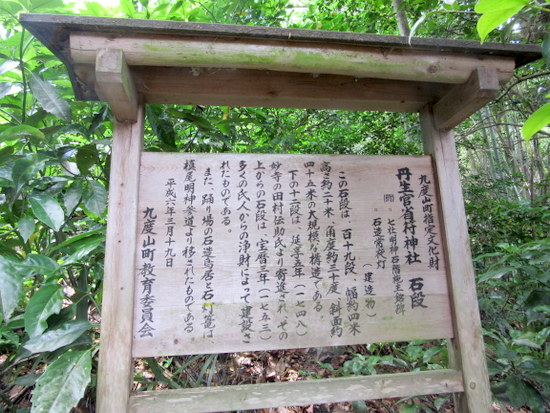 九度山町指定文化財
丹生官省付神社 石段
(建造物)
石造常夜灯
この石段は、百十九段、幅約四米
高さ約二十米、角度約三十度、斜面約
四十五米の大規模な構造である。
下の十二段は、延享五年(一七四八)
妙寺の田村伝助氏より寄進され、その
上からの石段は、宝暦三年(一七五三)
多くの氏人からの浄財によって建設さ
れたものである。
また、踊り場の石造鳥居と石灯篭は
槙尾明神参道より移されたものである。
平成六年三月十九日
九度山町教育委員会